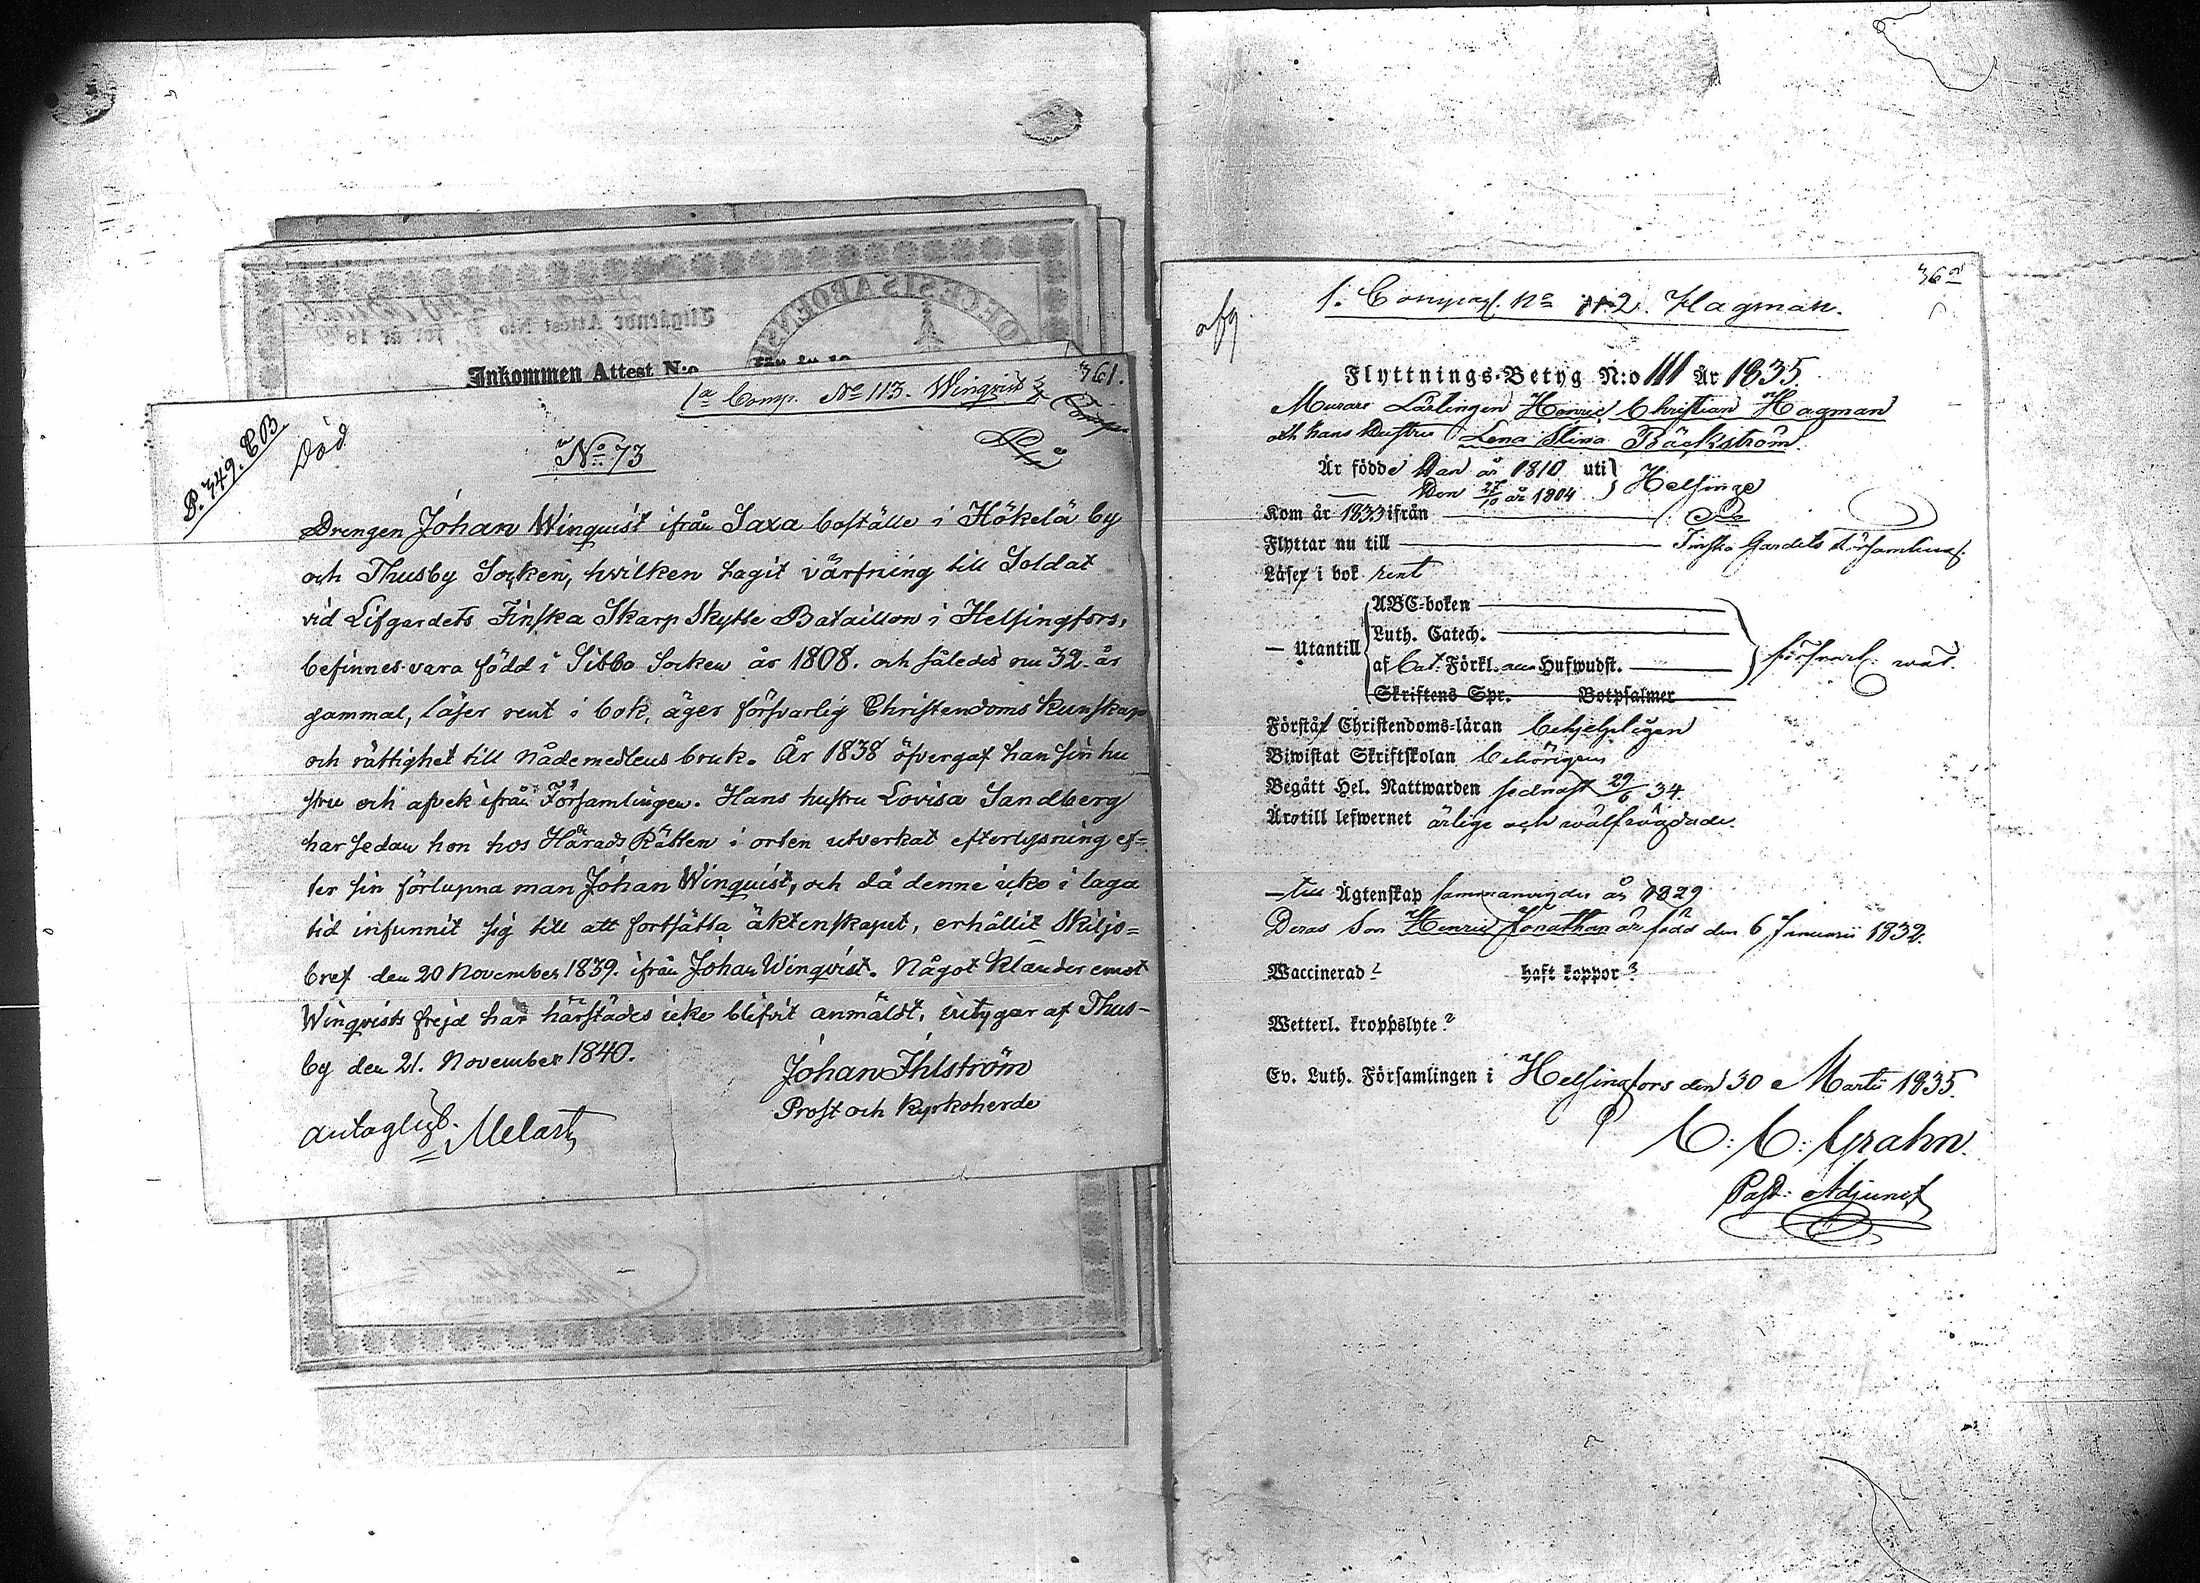 Inkommen Attest N:o
361.
1a Comp. No 113. Winqvist
P. 349. CB.
Död
No 73
Drengen Johan Winquist ifrån Saxa boställe i Hökelä by
och Thusby Socken, hvilken tagit värfning till Soldat
vid Lifgardets Finska Skarp Skytte Bataillon i Helsingfors,
befinnes vara född i Sibbo Socken år 1808. och således nu 32. år
gammal, läser rent i bok, äger försvarlig Christendoms kunskap
och rättighet till nådemedlens bruk. År 1838 öfvergaf han sin hu
stru och afvek ifrån Församlingen. Hans hustru Lovisa Sandberg
har sedan hon hos Härads Rätten i orten utverkat efterlysning ef=
ter sin förlupna man Johan Winquist, och då denne icke i laga
tid infunnit sig till att fortsätta äktenskapet, erhållit Skiljo=
bref den 20 November 1839. ifrån Johan Winqvist. Något klander emot
Winqvists frejd har härstädes icke blifvit anmäldt, intygar af Thus-
by den 21. November 1840.
Johan Ihlström
Prost och Kyrkoherde
Melart
362
afg
1. Compagn. No 112. Hagman.
Flyttnings-Betyg N:o 111 År 1835.
Murare Lärlingen Henric Christian Hagman
och hans hustru Lena Stina Bäckström.
Är födde Den år 1810 uti
Den 27/10 år 1804 Helsinge
Kom år 1833 ifrån
Flyttar nu till Finska Gardets Församling.
Läser i bok rent
ABC-boken
Luth. Catech.
— Utantill
af Cat. Förkl. Hufwudst. försvarl.
Skriftens Spr. Botpsalmer
Förstår Christendoms-läran behjelpligen
Biwistat Skriftskolan behörigen
Begått Hel. Nattwarden sednast 29/6 34.
Äro till lefwernet ärlige och wälfrägdade.
— till Ägtenskap sammanvigde år 1829
Deras Son Henric Jonathan är född den 6 Januarii 1832.
Waccinerad ? haft koppor ?
Wetterl. kroppslyte ?
Ev. Luth. Församlingen i Helsingfors den 30 Martii 1835.
C: C: Grahn.
Past: Adjunct